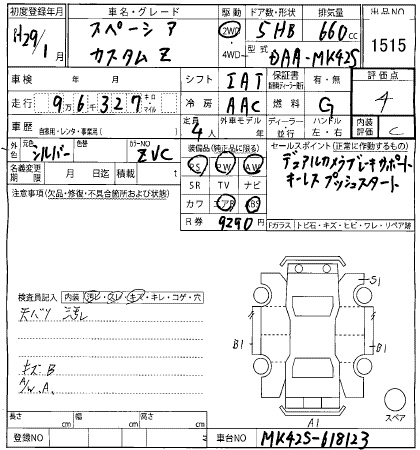 初度登録年月 車名・グレード 駆動 ドア数・形状 排気量 出品NO
H29/1月 スペーシア カスタムZ 2WD 4WD 5HB 660cc 1515
型式 DAA-MK42S
車検 年 月 シフト IAT 保証書 有・無 評価点 4
走行 9万6千327 キロ マイル 冷房 AAC 燃料 G
車歴 自家用・レンタ・事業用( ) 定員 4人 外車モデル 年 ディーラー 並行 ハンドル 左・右 内装評価 C
外色 元色 シルバー 色替 カラーNO ZVC 装備品(純正品に限る) セールスポイント(正常に作動するもの)
名義変更期限 月 日迄 積載 t PS PW AW デュアルカメラブレーキサポート
注意事項(欠品・修復・不具合箇所および状態) SR TV ナビ キーレスプッシュスタート
カワ エアB ABS
R券 9290円 Fガラス トビ石・キズ・ヒビ・ワレ・リペア跡
検査員記入 内装 汚レ・スレ・キズ・キレ・コゲ・穴 S1
天バリ 汚レ
B1 B1
キズB
A/W A
スペア
長さ cm 幅 cm 高さ cm A1
登録NO 車台NO MK42S-618123